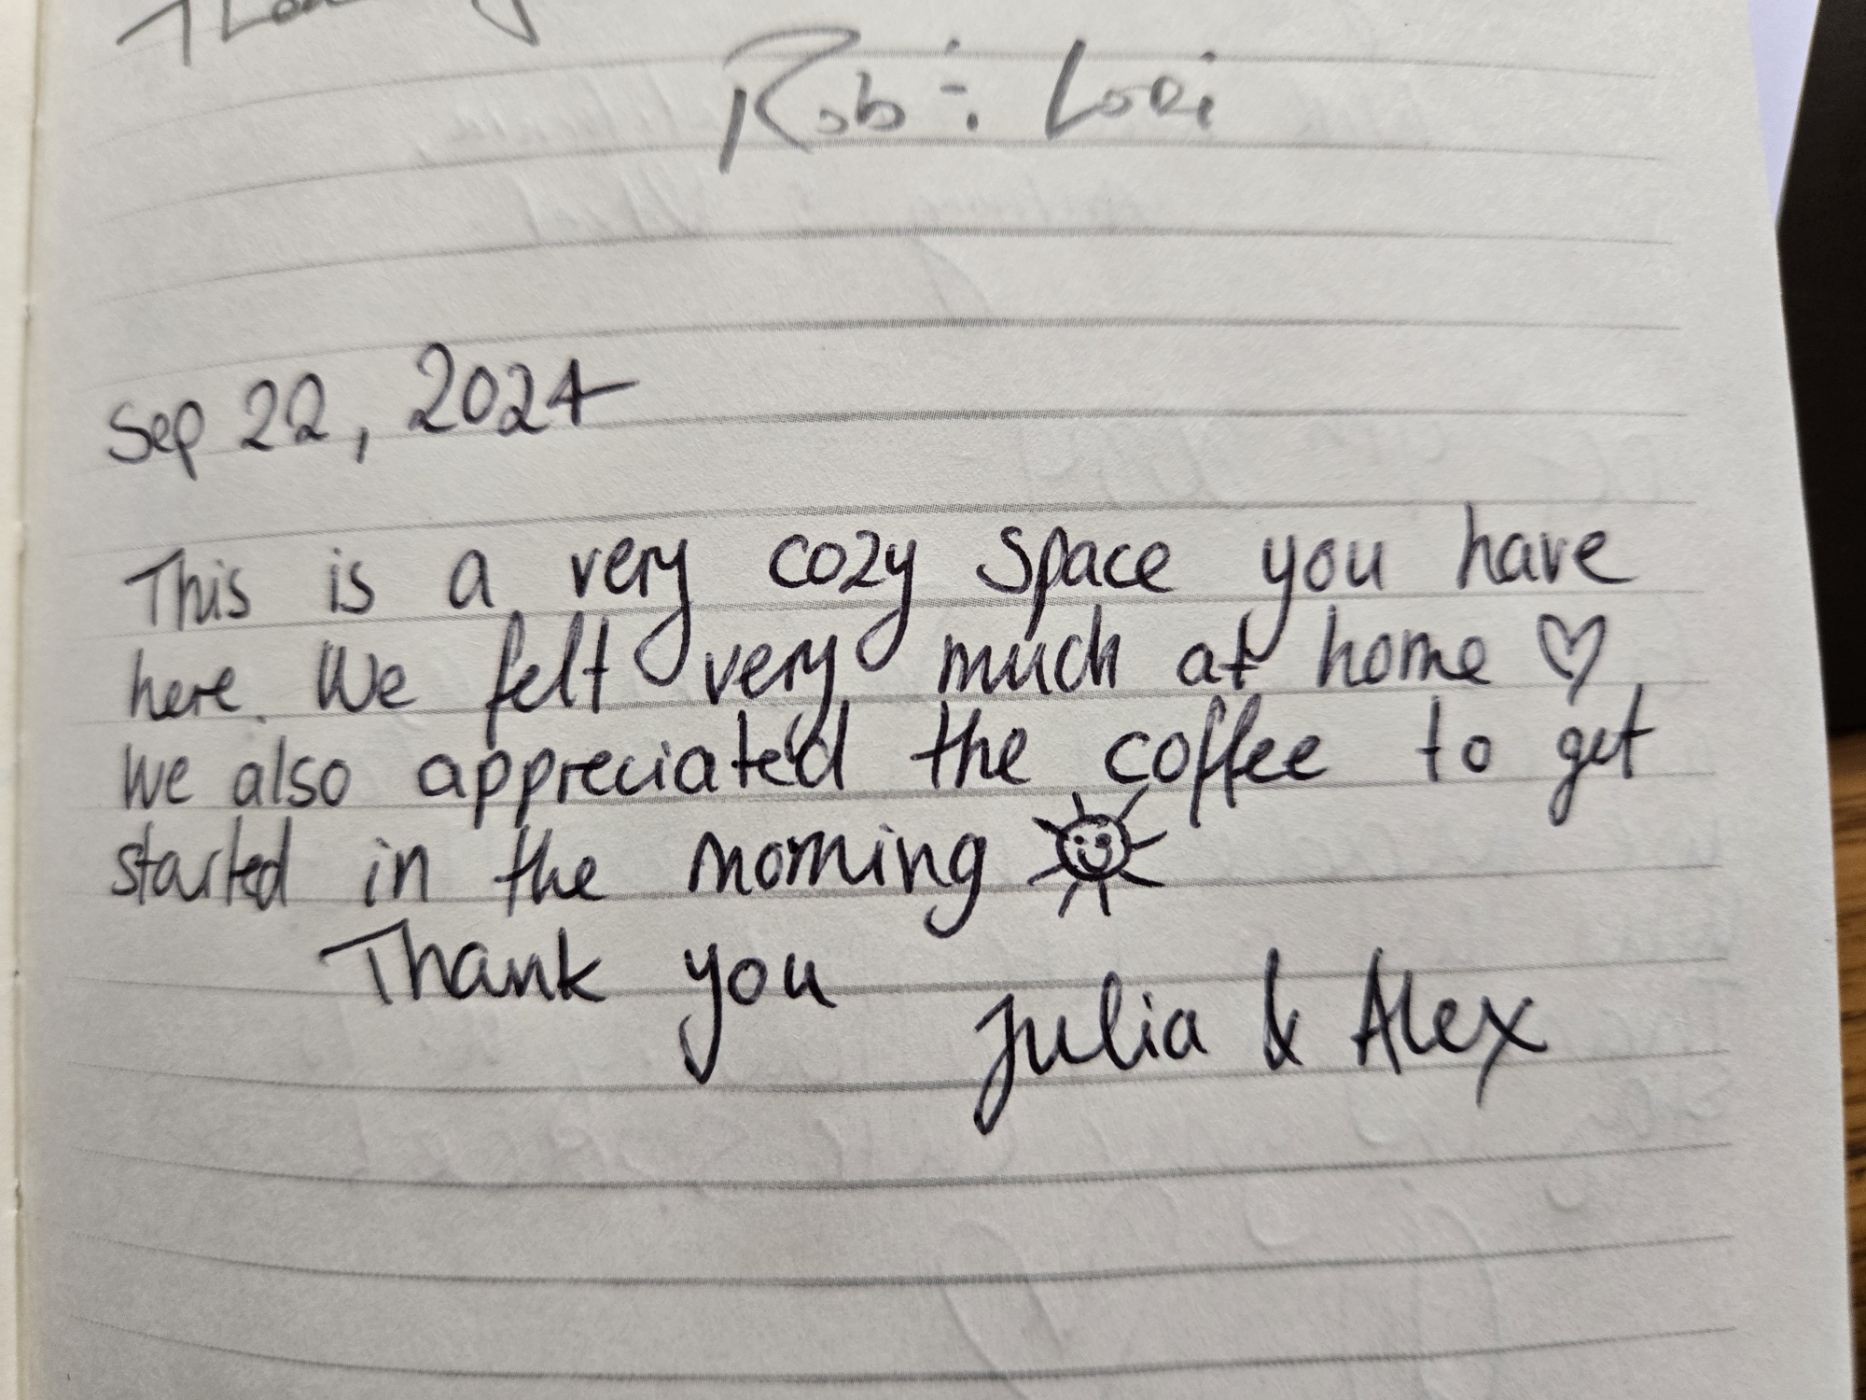 Rob & Lori
Sep 22, 2024
This is a very cozy space you have
here. We felt very much at home ♡
We also appreciated the coffee to get
started in the morning
Thank you
Julia & Alex